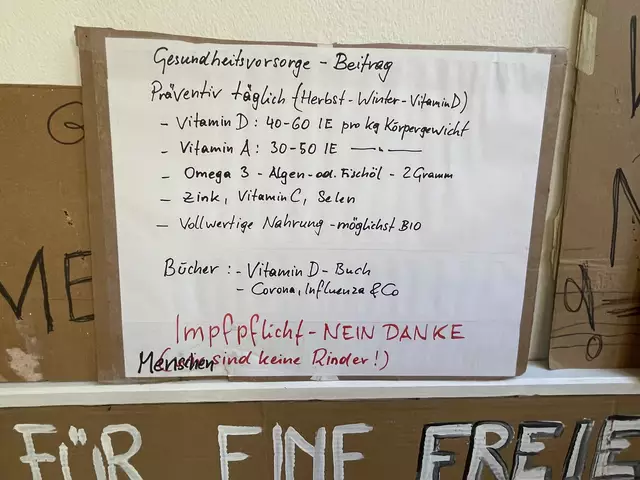 Gesundheitsvorsorge - Beitrag
Präventiv täglich (Herbst-Winter-Vitamin D)
- Vitamin D: 40-60 IE pro kg Körpergewicht
- Vitamin A: 30-50 IE —〃—
- Omega 3 - Algen- od. Fischöl - 2 Gramm
- Zink, Vitamin C, Selen
- Vollwertige Nahrung - möglichst BIO
Bücher: - Vitamin D - Buch
- Corona, Influenza & Co
Impfpflicht - NEIN DANKE
Menschen sind keine Rinder!)
ME
FÜR EINE FREIE